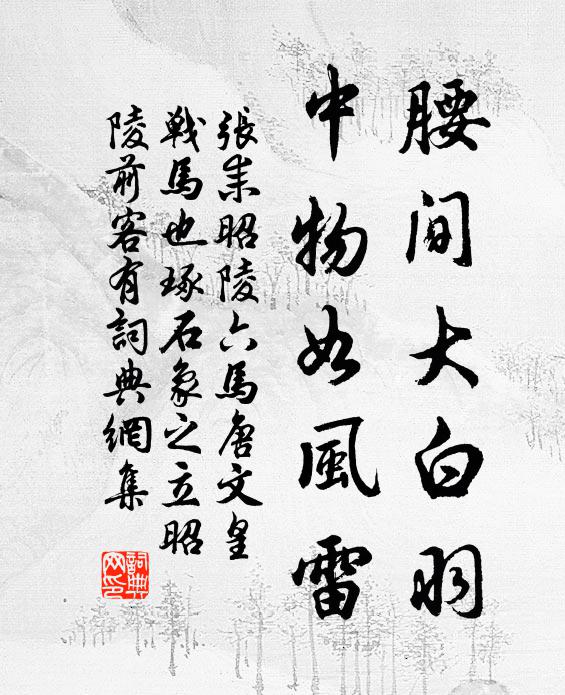 腰間大白羽
中物如風雷
張耒昭陵六馬唐文皇
戰馬也琢石象之立昭
陵前客有詞典網集
詞典网印